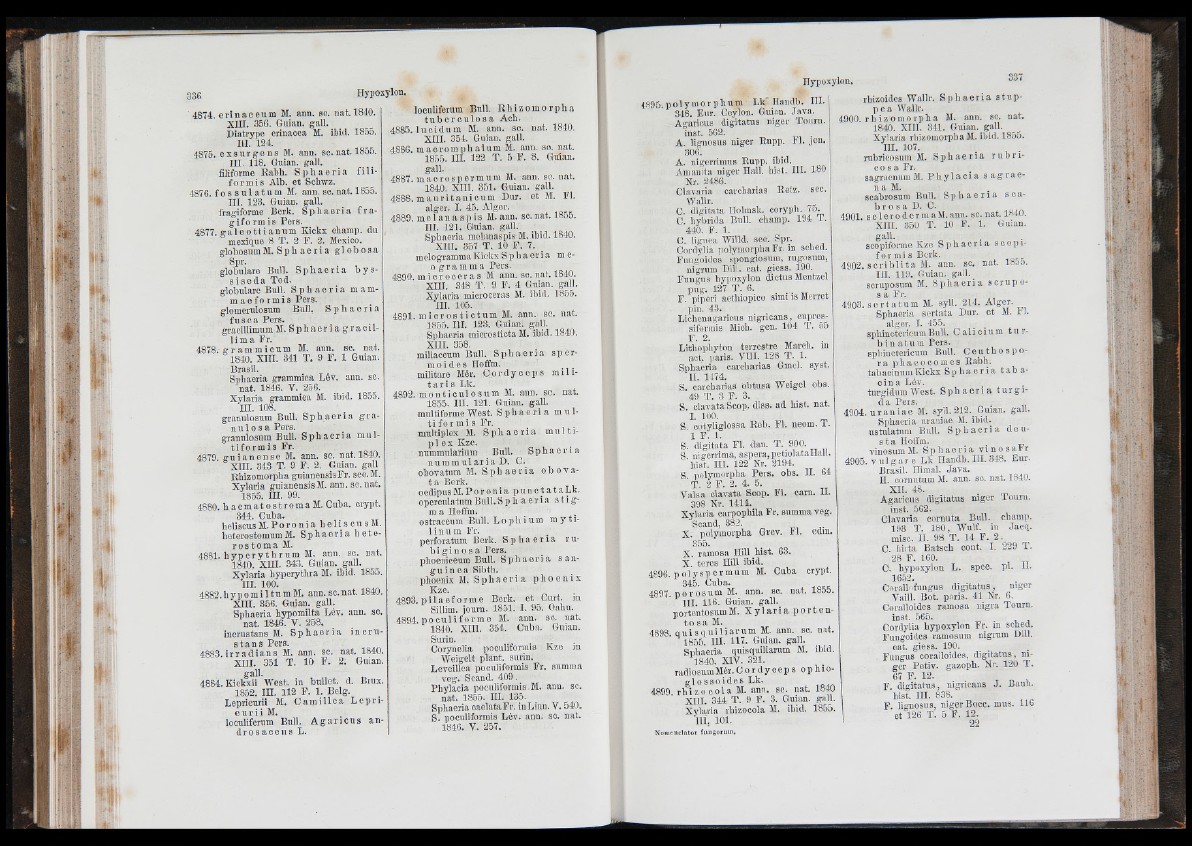 336
Hypoxylon.
4874. erinaceum M. ann. sc. nat. 1840.
XIII. 356. Guian. gall.
Diatrype erinacea M. ibid. 1855.
III. 124.
4875. exsurgens M. ann. sc. nat. 1855.
III. 118. Guian. gall.
filiforme Rabh. Sphaeria fili-
formis Alb. et Schwz.
4876. fossulatum M. ann. sc. nat. 1855.
III. 123. Guian. gall.
fragiforme Berk. Sphaeria fra-
giformis Pers.
4877. galeottianum Kickx champ. du
mexique 8 T. 2 F. 2. Mexico.
globosum M. Sphaeria globosa
Spr.
globulare Bull. Sphaeria bys-
siseda Tod.
globulare Bull. Sphaeria mam-
maeformis Pers.
glomerulosum Bull. Sphaeria
fusca Pers.
gracillimum M. Sphaeria gracil-
lima Fr.
4878. grammicum M. ann. sc. nat.
1840. XIII. 341 T. 9 F. 1 Guian.
Brasil.
Sphaeria grammica Lév. ann. sc.
nat. 1846. V. 256.
Xylaria grammica M. ibid. 1855.
III. 108.
granulosum Bull. Sphaeria gra-
nulosa Pers.
granulosum Bull. Sphaeria mul-
tiformis Fr.
4879. guianense M. ann. sc. nat. 1840.
XIII. 343 T. 9 F. 2. Guian. gall
Rhizomorpha guianensis Fr. sec. M.
Xylaria guianensis M. ann. sc. nat.
1855. III. 99.
4880. haematostroma M. Cuba. crypt.
344. Cuba.
heliscus M. Poronia heliscus M.
heterostomum M. Sphaeria hete-
rostoma M.
4881. hyperythrum M. ann. sc. nat.
1840. XIII. 343. Guian. gall.
Xylaria hyperythra M. ibid. 1855.
III. 100.
4882. hypomiltum M. ann. sc. nat. 1840.
XIII. 356. Guian. gall.
Sphaeria hypomilta Lév. ann. sc.
nat. 1846. V. 258.
incrustans M. Sphaeria incru-
stans Pers.
4883. irradians M. ann. sc. nat. 1840.
XIII. 351 T. 10 F. 2. Guian.
gall.
4884. Kickxii West. in bullet. d. Brux.
1852. III. 112 F. 1. Belg.
Leprieurii M. Camillea Lepri-
eurii M.
loculiferum Bull. Agaricus an-
drosaceus L.
loculiferum Bull. Rhizomorpha
tuberculosa Ach.
4885. lucidum M. ann. sc. nat. 1840.
XIII. 354. Guian. gall.
4886. macromphalum M. ann. sc. nat.
1855. III. 122 T. 5 F. 8. Guian.
gall.
4887. macrospermum M. ann. sc. nat.
1840. XIII. 351. Guian. gall.
4888. mauritanicum Dur. et M. Fl.
alger. I. 45. Alger.
4889. melanaspis M. ann. sc. nat. 1855.
III. 121. Guian. gall.
Sphaeria melanaspis M. ibid. 1840.
XIII. 357 T. 10 F. 7.
melogramma Kickx Sphaeria me-
ogramma Pers.
4890. microceras M. ann. sc. nat. 1840.
XIII. 348 T. 9 F. 4 Guian. gall.
Xylaria microceras M. ibid. 1855.
III. 105.
4891. microstictum M. ann. sc. nat.
1855. III. 123. Guian. gall.
Sphaeria microsticta M. ibid. 1840.
XIII. 358.
miliaceum Bull. Sphaeria sper-
moides Hoffm.
militare Mér. Cordyceps mili-
taris Lk.
4892. monticulosum M. ann. sc. nat.
1855. III. 121. Guian. gall.
multiforme West. Sphaeria mul-
tiformis Fr.
multiplex M. Sphaeria multi-
plex Kze.
nummularium Bull. Sphaeria
nummularia D. C.
obovatum M. Sphaeria obova-
ta Berk.
oedipus M. Poronia punctata Lk.
operculatum Bull. Sphaeria stig-
ma Hoffm.
ostraceum Bull. Lophium myti-
linum Fr.
perforatum Berk. Sphaeria ru-
biginosa Pers.
phoeniceum Bull. Sphaeria san-
guinea Sibth.
phoenix M. Sphaeria phoenix
Kze.
4893. pilaeforme Berk. et Curt. in
Sillim. journ. 1851. I. 95. Oahu.
4894. poculiforme M. ann. sc. nat.
1840. XIII. 354. Cuba. Guian.
Surin.
Corynelia poculiformis Kze in
Weigelt plant. surin.
Leveillea poculiformis Fr. summa
veg. Scand. 409.
Phylacia poculiformis M. ann. sc.
nat. 1855. III. 135.
Sphaeria caelata Fr. in Linn. V. 540.
S. poculiformis Lév. ann. sc. nat.
1846. V. 257.
Hypoxylon.
337
4895. polymorphum Lk Handb. III.
348. Eur. Ceylon. Guian. Java.
Agaricus digitatus niger Tourn.
inst. 562.
A. lignosus niger Rupp. Fl. jen.
306.
A. nigerrimus Rupp. ibid.
Amanita niger Hall. hist. III. 180
Nr. 2486.
Clavaria carcharias Retz. sec.
Wallr.
C. digitata Holmsk. coryph. 75.
C. hybrida Bull. champ. 194 T.
440. F. 1.
C. lignea Willd. sec. Spr.
Cordylia polymorpha Fr. in sched.
Fungoides spongiosum, rugosum,
nigrum Dill. cat. giess. 190.
Fungus hypoxylon dictus Mentzel
pug. 127 T. 6.
F. piperi aethiopico similis Merret
pin. 43.
Lichenagaricus nigricans, cupres-
siformis Mich. gen. 104 T. 55
F. 2.
Lithophyton terrestre March. in
act. paris. VIII. 128 T. 1.
Sphaeria carcharias Gmel. syst.
II. 1474.
S. carcharias obtusa Weigel obs.
49 T. 3 F. 3.
S. clavata Scop. diss. ad hist. nat.
I. 100.
S. cotyliglossa Reb. Fl. neom. T.
1 F. 1.
S. digitata Fl. dan. T. 900.
S. nigerrima, aspera, petiolata Hall.
hist. III. 122 Nr. 2194.
S. polymorpha Pers. obs. II. 64
T. 2 F. 2. 4. 5.
Valsa clavata Scop. Fl. carn. II.
398 Nr. 1414.
Xylaria carpophila Fr. summa veg.
Scand. 382.
X. polymorpha Grev. Fl. edin.
355.
X. ramosa Hill hist. 63.
X. teres Hill ibid.
4896. polyspermum M. Cuba crypt.
345. Cuba.
4897. porosum M. ann. sc. nat. 1855.
III. 116. Guian. gall.
portentosum M. Xylaria porten-
tosa M.
4898. quisquiliarum M. ann. sc. nat.
1855. III. 117. Guian. gall.
Sphaeria quisquiliarum M. ibid.
1840. XIV. 321.
radiosum Mér. Cordyceps ophio-
glossoides Lk.
4899. rhizocola M. ann. sc. nat. 1840
XIII. 344 T. 9 F. 3. Guian. gall.
Xylaria rhizocola M. ibid. 1855.
III, 101.
Nomenclator fungorum.
rhizoides Wallr. Sphaeria stup-
pea Wallr.
4900. rhizomorpha M. ann. sc. nat.
1840. XIII. 341. Guian. gall.
Xylaria rhizomorpha M. ibid. 1855.
III. 107.
rubricosum M. Sphaeria rubri-
cosa Fr.
sagraenum M. Phylacia sagrae-
na M.
scabrosum Bull. Sphaeria sca-
brosa D. C.
4901. scleroderma M. ann. sc. nat. 1840.
XIII. 350 T. 10 F. 1. Guian.
gall.
scopiforme Kze Sphaeria scopi-
formis Berk.
4902. scriblita M. ann. sc. nat. 1855.
III. 119. Guian. gall.
scruposum M. Sphaeria scrupo-
sa Fr.
4903. sertatum M. syll. 214. Alger.
Sphaeria sertata Dur. et M. Fl.
alger. I. 455.
sphinctericum Bull. Calicium tur-
binatum Pers.
sphinctericum Bull. Centhospo-
ra phaeocomes Rabh.
tabacinum Kickx Sphaeria taba-
cina Lév.
turgidum West. Sphaeria turgi-
da Pers.
4904. uraniae M. syll. 212. Guian. gall.
Sphaeria uraniae M. ibid.
ustulatum Bull. Sphaeria deu-
sta Hoffm.
vinosum M. Sphaeria vinosa Fr
4905. vulgare Lk Handb. III. 348. Eur.
Brasil. Himal. Java.
H. cornutum M. ann. sc. nat. 1840.
XII. 48.
Agaricus digitatus niger Tourn.
inst. 562.
Clavaria cornuta Bull. champ.
193 T. 180, Wulf. in Jacq.
misc. II. 98 T. 14 F. 2.
C. hirta Batsch cont. I. 229 T.
28 F. 160.
C. hypoxylon L. spec. pl. II.
1652.
Corall-fungus digitatus, niger
Vaill. Bot. paris. 41 Nr. 6.
Coralloides ramosa nigra Tourn.
inst. 565.
Cordylia hypoxylon Fr. in sched.
Fungoides ramosum nigrum Dill.
cat. giess. 190.
Fungus coralloides, digitatus, ni-
ger Petiv. gazoph. Nr. 120 T.
67 F. 12.
F. digitatus, nigricans J. Bauh.
hist. III. 838.
F. lignosus, niger Bocc. mus. 116
et 126 T. 5 F. 12.
22